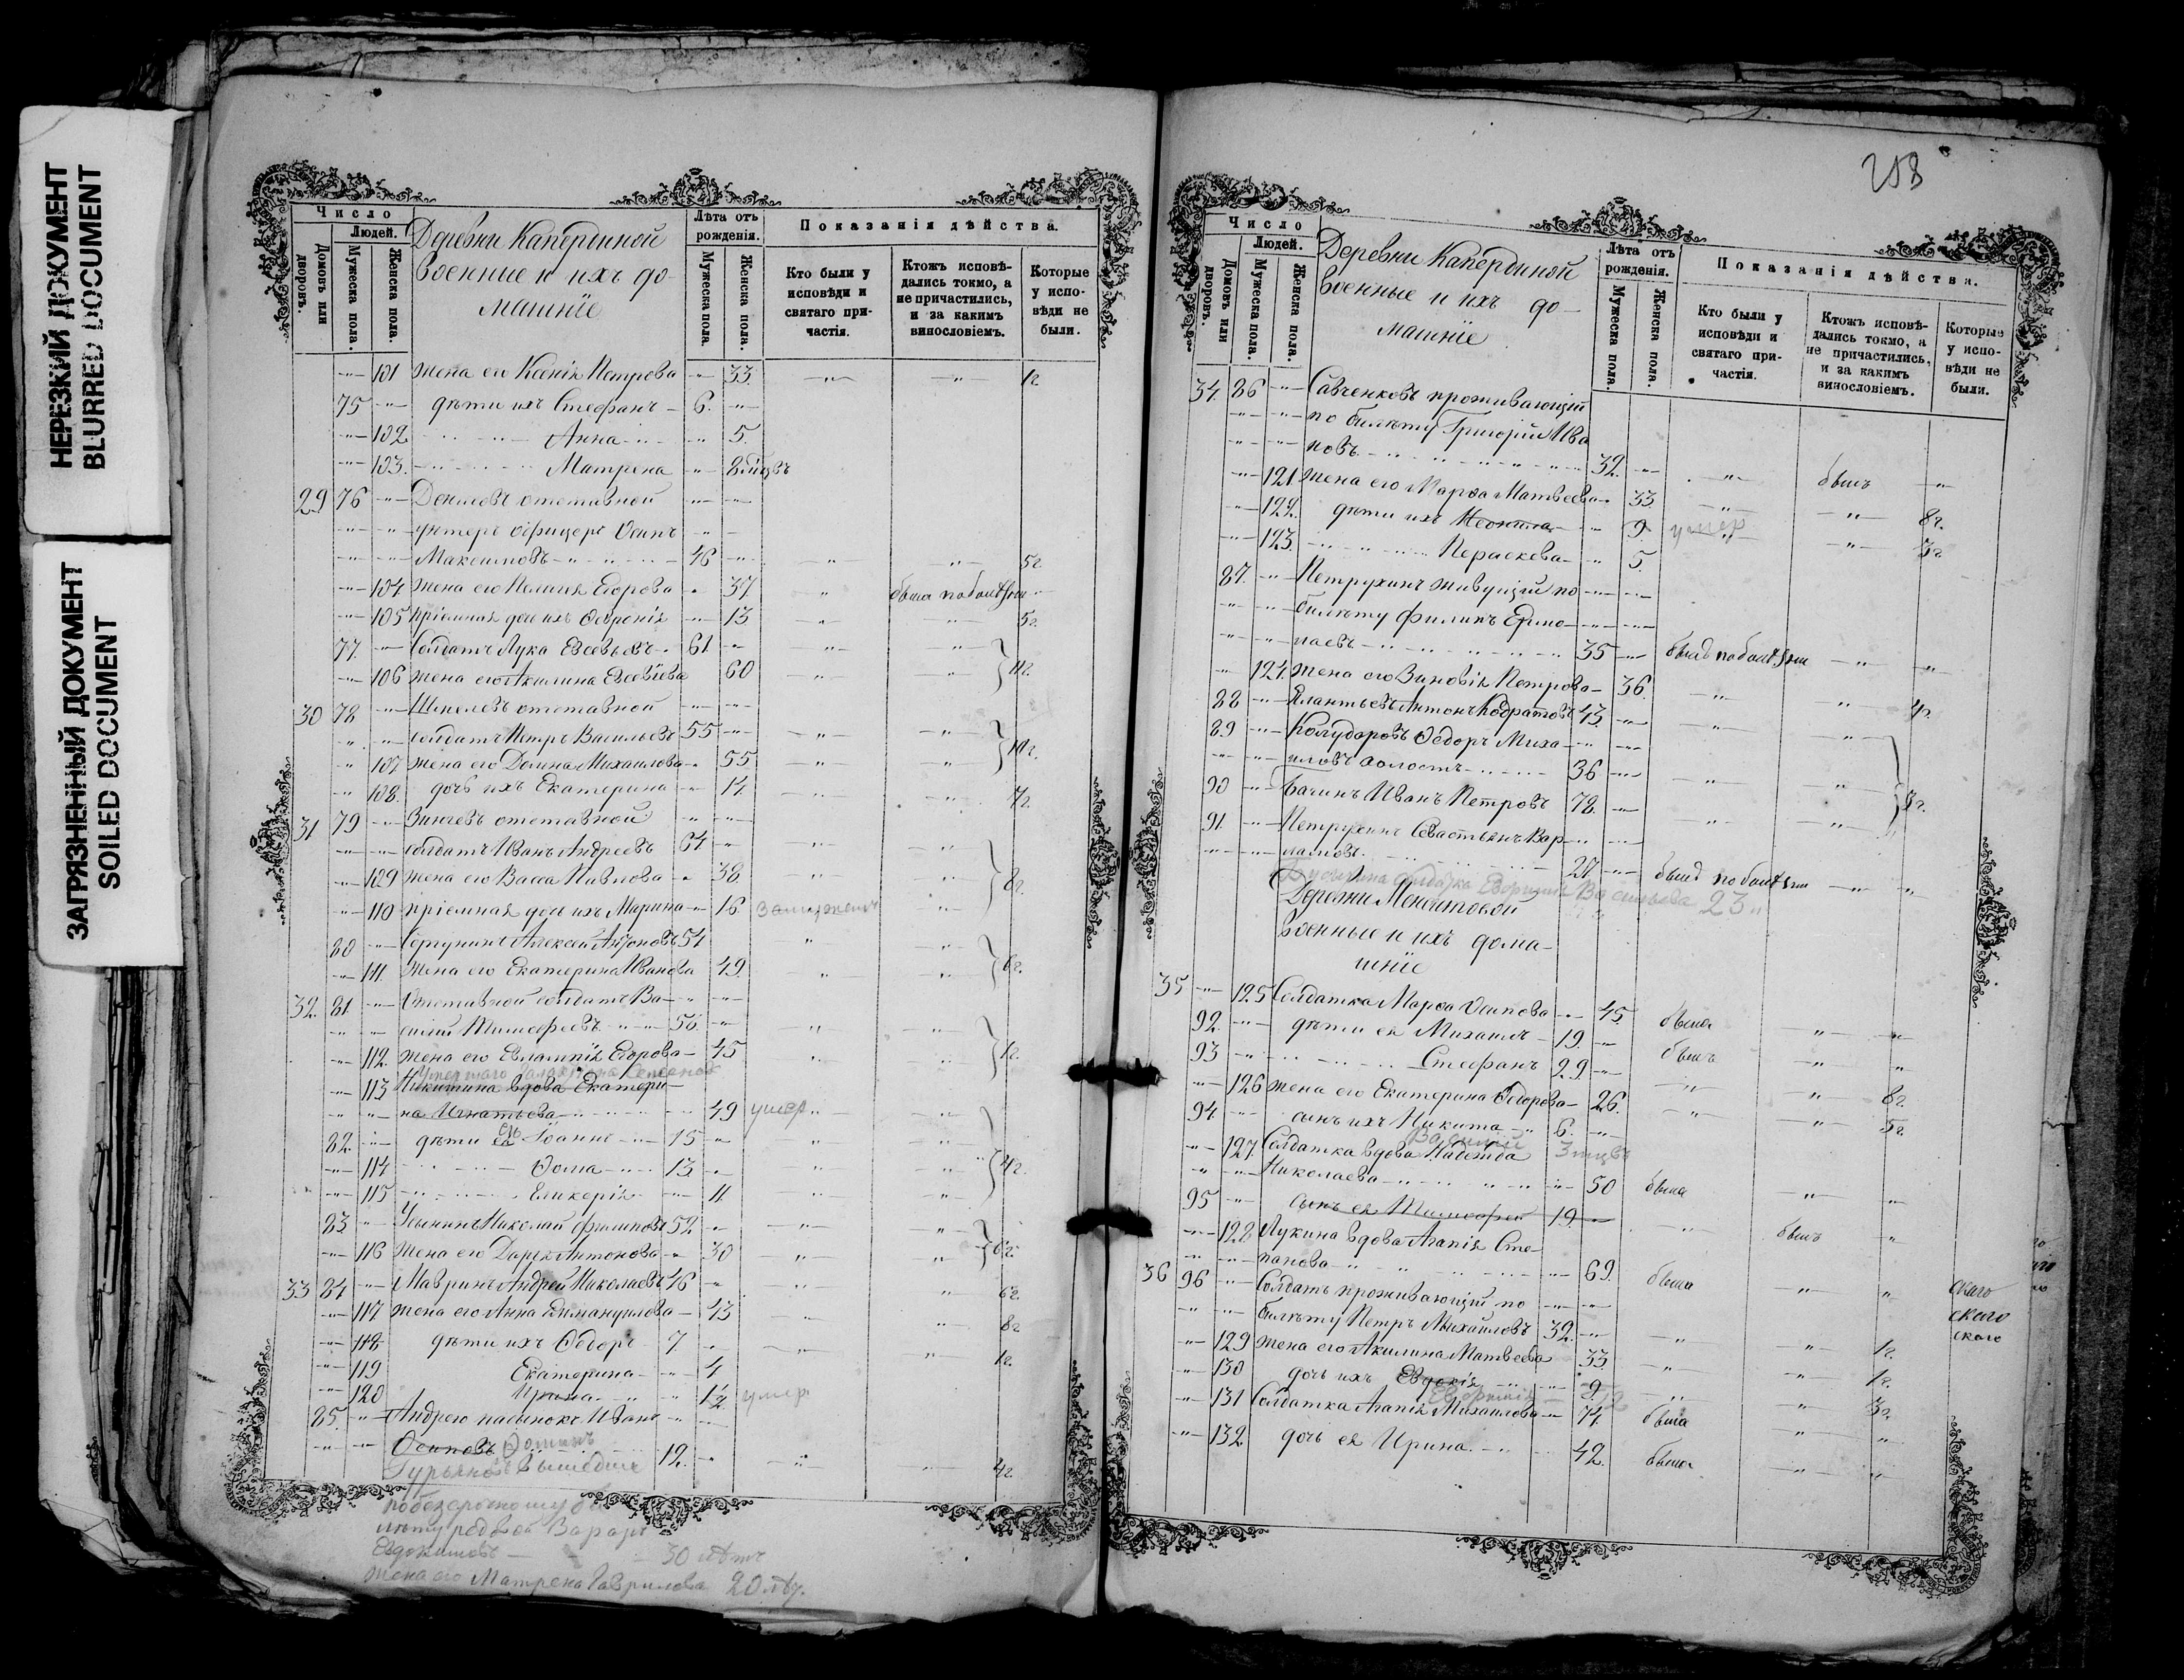 НЕРЕЗКИЙ ДОКУМЕНТ
BLURRED DOCUMENT
ЗАГРЯЗНЕННЫЙ ДОКУМЕНТ
SOILED DOCUMENT
Число
Людей.
Домовъ или дворовъ.
Мужеска пола.
Женска пола.
Деревни Капердиной
военные и ихъ до-
машніе
Лѣта отъ рожденія.
Мужеска пола.
Женска пола.
Показанія дѣйства.
Кто были у исповѣди и святаго при-частія.
Ктожъ исповѣ-дались токмо, а не причастились, и за какимъ винословіемъ.
Которые у испо-вѣди не были.
101 жена его Ксенія Петрова 33 1г
75 дѣти ихъ Стефанъ 6
102 Анна 5
103 Матрена 8
29 76 отставной
унтеръ офицеръ Осипъ
Максимовъ 46 5г
104 жена его Егорова 37 была
105 пріемная дочь ихъ Февронія 13 5г
77 Солдатъ Лука 61
106 жена его Акилина 60 11г
30 78 Шмелевъ отставной
солдатъ Петръ Васильевъ 55
107 жена его Домна Михаилова 55 10г
108 дочь ихъ Екатерина 14 7г
31 79 отставной
солдатъ Иванъ Андреевъ 64
109 жена его Васса Павлова 38 8г
110 пріемная дочь ихъ Марина 16 замужемъ
80 Алексей 54
111 жена его Екатерина Иванова 49 6г
32 81 Отставной солдатъ Ва-
силій Тимофеевъ 56
112 жена его Евлампія Егорова 45 1г
113 Никитина вдова Екатери-
на Игнатьева 49 умер
82 дѣти ея Іоаннъ 15
114 Фома 13 4г
115 Гликерія 11
83 Николай Филиповъ 52
116 жена его Дарья Антонова 30 6г
33 84 Мавринъ Андрей Николаевъ 46 6г
117 жена его Анна Еммануилова 43 8г
118 дѣти ихъ Ѳедоръ 7 1г
119 Екатерина 4
120 Ирина 1½ умер
85 Андрею пасынокъ Иванъ
Осиповъ 12 4г
Гурьяновъ вышедши
по безсрочному би-
лету рядовой
Евдокимовъ 30 лѣтъ
жена его Матрена Гаврилова 20 лѣт.
258
Число
Людей.
Домовъ или дворовъ.
Мужеска пола.
Женска пола.
Деревни Капердиной
военные и ихъ до-
машніе
Лѣта отъ рожденія.
Мужеска пола.
Женска пола.
Показанія дѣйства.
Кто были у исповѣди и святаго при-частія.
Ктожъ исповѣ-дались токмо, а не причастились, и за какимъ винословіемъ.
Которые у испо-вѣди не были.
34 86 Савченковъ проживающій
по билету Григорій Ива
новъ 32 былъ
121 жена его Марѳа Матвеева 33 8г
122 дѣти ихъ 9 умер 3г
123 Параскева 5
87 Петрухинъ живущій по
билету Филипъ Ермо-
лаевъ 35
124 жена его Зиновія Петрова 36 4г
88 Антонъ 43
89 Ѳедоръ Миха-
иловъ холостъ 36
90 Иванъ Петровъ 78 3г
91 Петрухинъ Севастьянъ Вар-
ламовъ 27
солдатка Васильева 23
Деревни
военные и ихъ дома-
шніе
35 125 Солдатка Марѳа Осипова 45 была
92 дѣти ея Михаилъ 19 былъ
93 Стефанъ 29
126 жена его Екатерина Ѳедорова 26 8г
94 сынъ ихъ Никита 6 5г
Василій
127 Солдатка вдова Надежда
Николаева 50 была
95 сынъ ея Тимофей 19 былъ
128 Лукина вдова Агапія Сте-
панова 69 была
36 96 Солдатъ проживающій по
билѣту Петръ Михайловъ 32 1г
129 жена его Акилина Матвеева 33 1г
130 дочь ихъ Евдокія 9 3г
131 Солдатка Агапія Михаилова 74 была
132 дочь ея Ирина 42 была
скаго
скаго
скаго